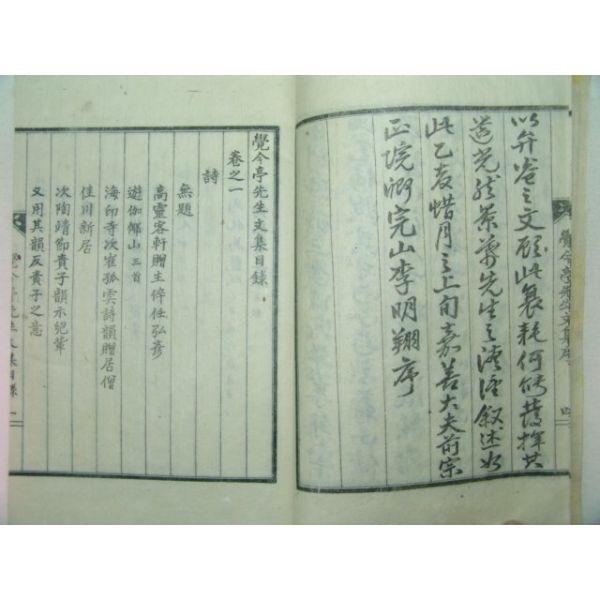 以弁卷之文顧此衰耗何能發揮其
道光然茶䕺先生之淂淂叙述如
此乙亥惜月之上旬嘉善大夫前宗
正院卿完山李明翔序
覺今亭先生文集序
四
覺今亭先生文集目錄
卷之一
詩
無題
高靈客軒贈主倅任弘彥
遊伽倻山 三首
海印寺次崔孤雲詩韻贈居僧
佳川新居
次陶靖節責子韻示兒輩
又用其韻反責子之意
覺今亭先生文集目錄
一